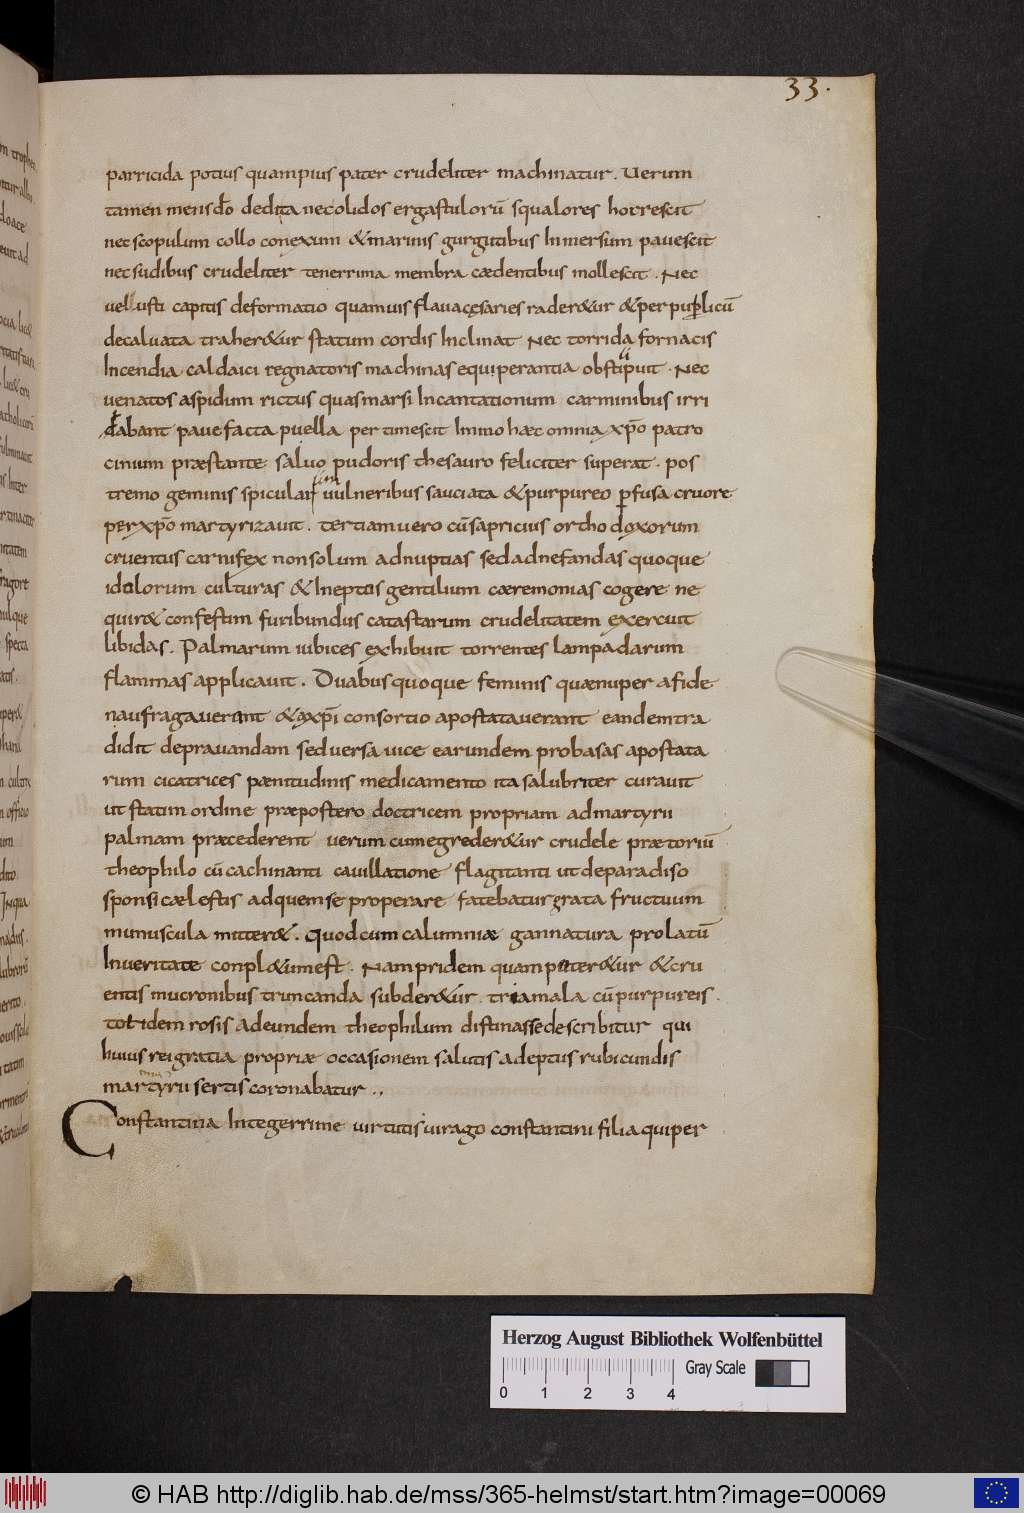 33.
parricida potius quampius pater crudeliter machinatur. Uerum
tamen mens dō dedita necolidos ergastulorū squalores horrescit
nec scopulum collo conexum &marinis gurgitibus Inmersum pauescit
nec sudibus crudeliter tenerrima membra cædentibus mollescit. Nec
uel usti capitis deformatio quamuis flauacęsaries rader&ur &perpuplicū
decaluata traher&ur statum cordis Inclinat Nec torrida fornacis
Incendia caldaici regnatoris machinas equiperantia obstipuit. Nec
uenatos aspidum rictus quasmarsi Incantationum carminibus irri
tabant pauefacta puella pertimescit Immo hæc omnia xp̄o patro
cinium præstante saluo pudoris thesauro feliciter superat. pos
tremo geminis spicularum uulneribus sauciata &purpureo pfusa cruore
perxp̄o martyrizauit. tertiam uero cūsapricius orthodoxorum
cruentus carnifex nonsolum adnuptias sedadnefandas quoque
idolorum culturas &Ineptas gentilium cæremonias cogere ne
quir& confestim furibundus catastarum crudelitatem exercuit
libidas. Palmarum iubices exhibuit torrentes lampadarum
flammas applicauit. Duabusquoque feminis quænuper afide
naufragauerant &axp̄i consortio apostatauerant eandemtra
didit deprauandam sedversa uice earundem probasas apostata
rum cicatrices pænitudinis medicamento ita salubriter curauit
ut statim ordine præpostero doctricem propriam admartyrii
palmam præcederent uerum cumegreder&ur crudele prætoriū
theophilo cū cachinanti cauillatione flagitanti utdeparadiso
sponsi cælestis adquemse properare fatebatur grata fructuum
munuscula mitter&. Quodcum calumniæ gannatura prolatū
Inueritate conpl&umest. Nampridem quamputer&ur &cru
entis mucronibus truncanda subder&ur tria mala cū purpureis.
totidem rosis adeundem theophilum distinasse describitur qui
huius reigratia propriæ occasionem salutis adeptus rubicundis
martyrii sertis coronabatur.,
Constantina Integerrime uirtutis uirago constantini filia quiper
Herzog August Bibliothek Wolfenbüttel
Gray Scale
0 1 2 3 4
© HAB http://diglib.hab.de/mss/365-helmst/start.htm?image=00069